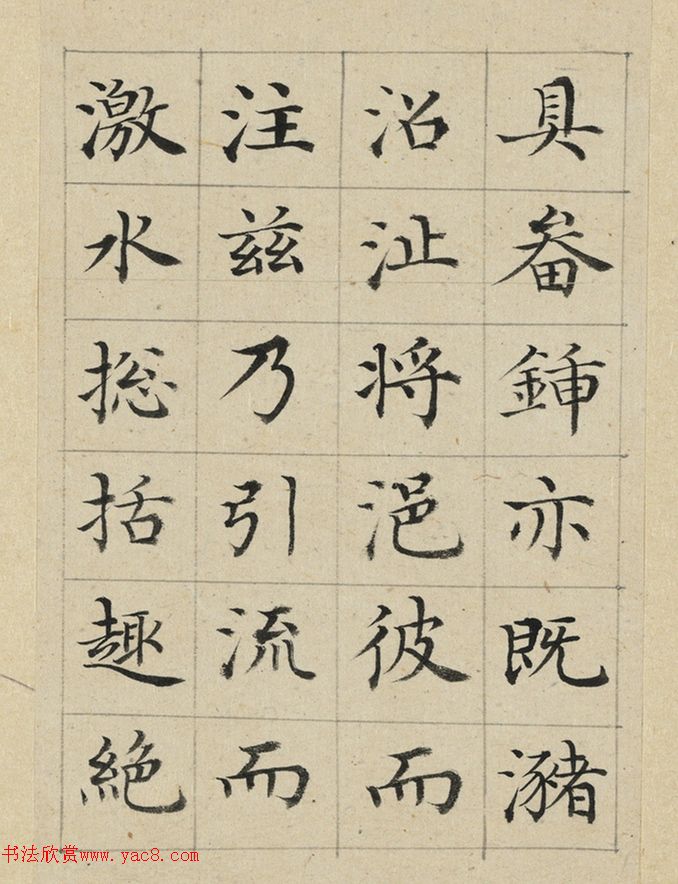 具畚鍤亦既瀦
沼沚将浥彼而
注兹乃引流而
激水捴括趣絶
书法欣赏www.yac8.com